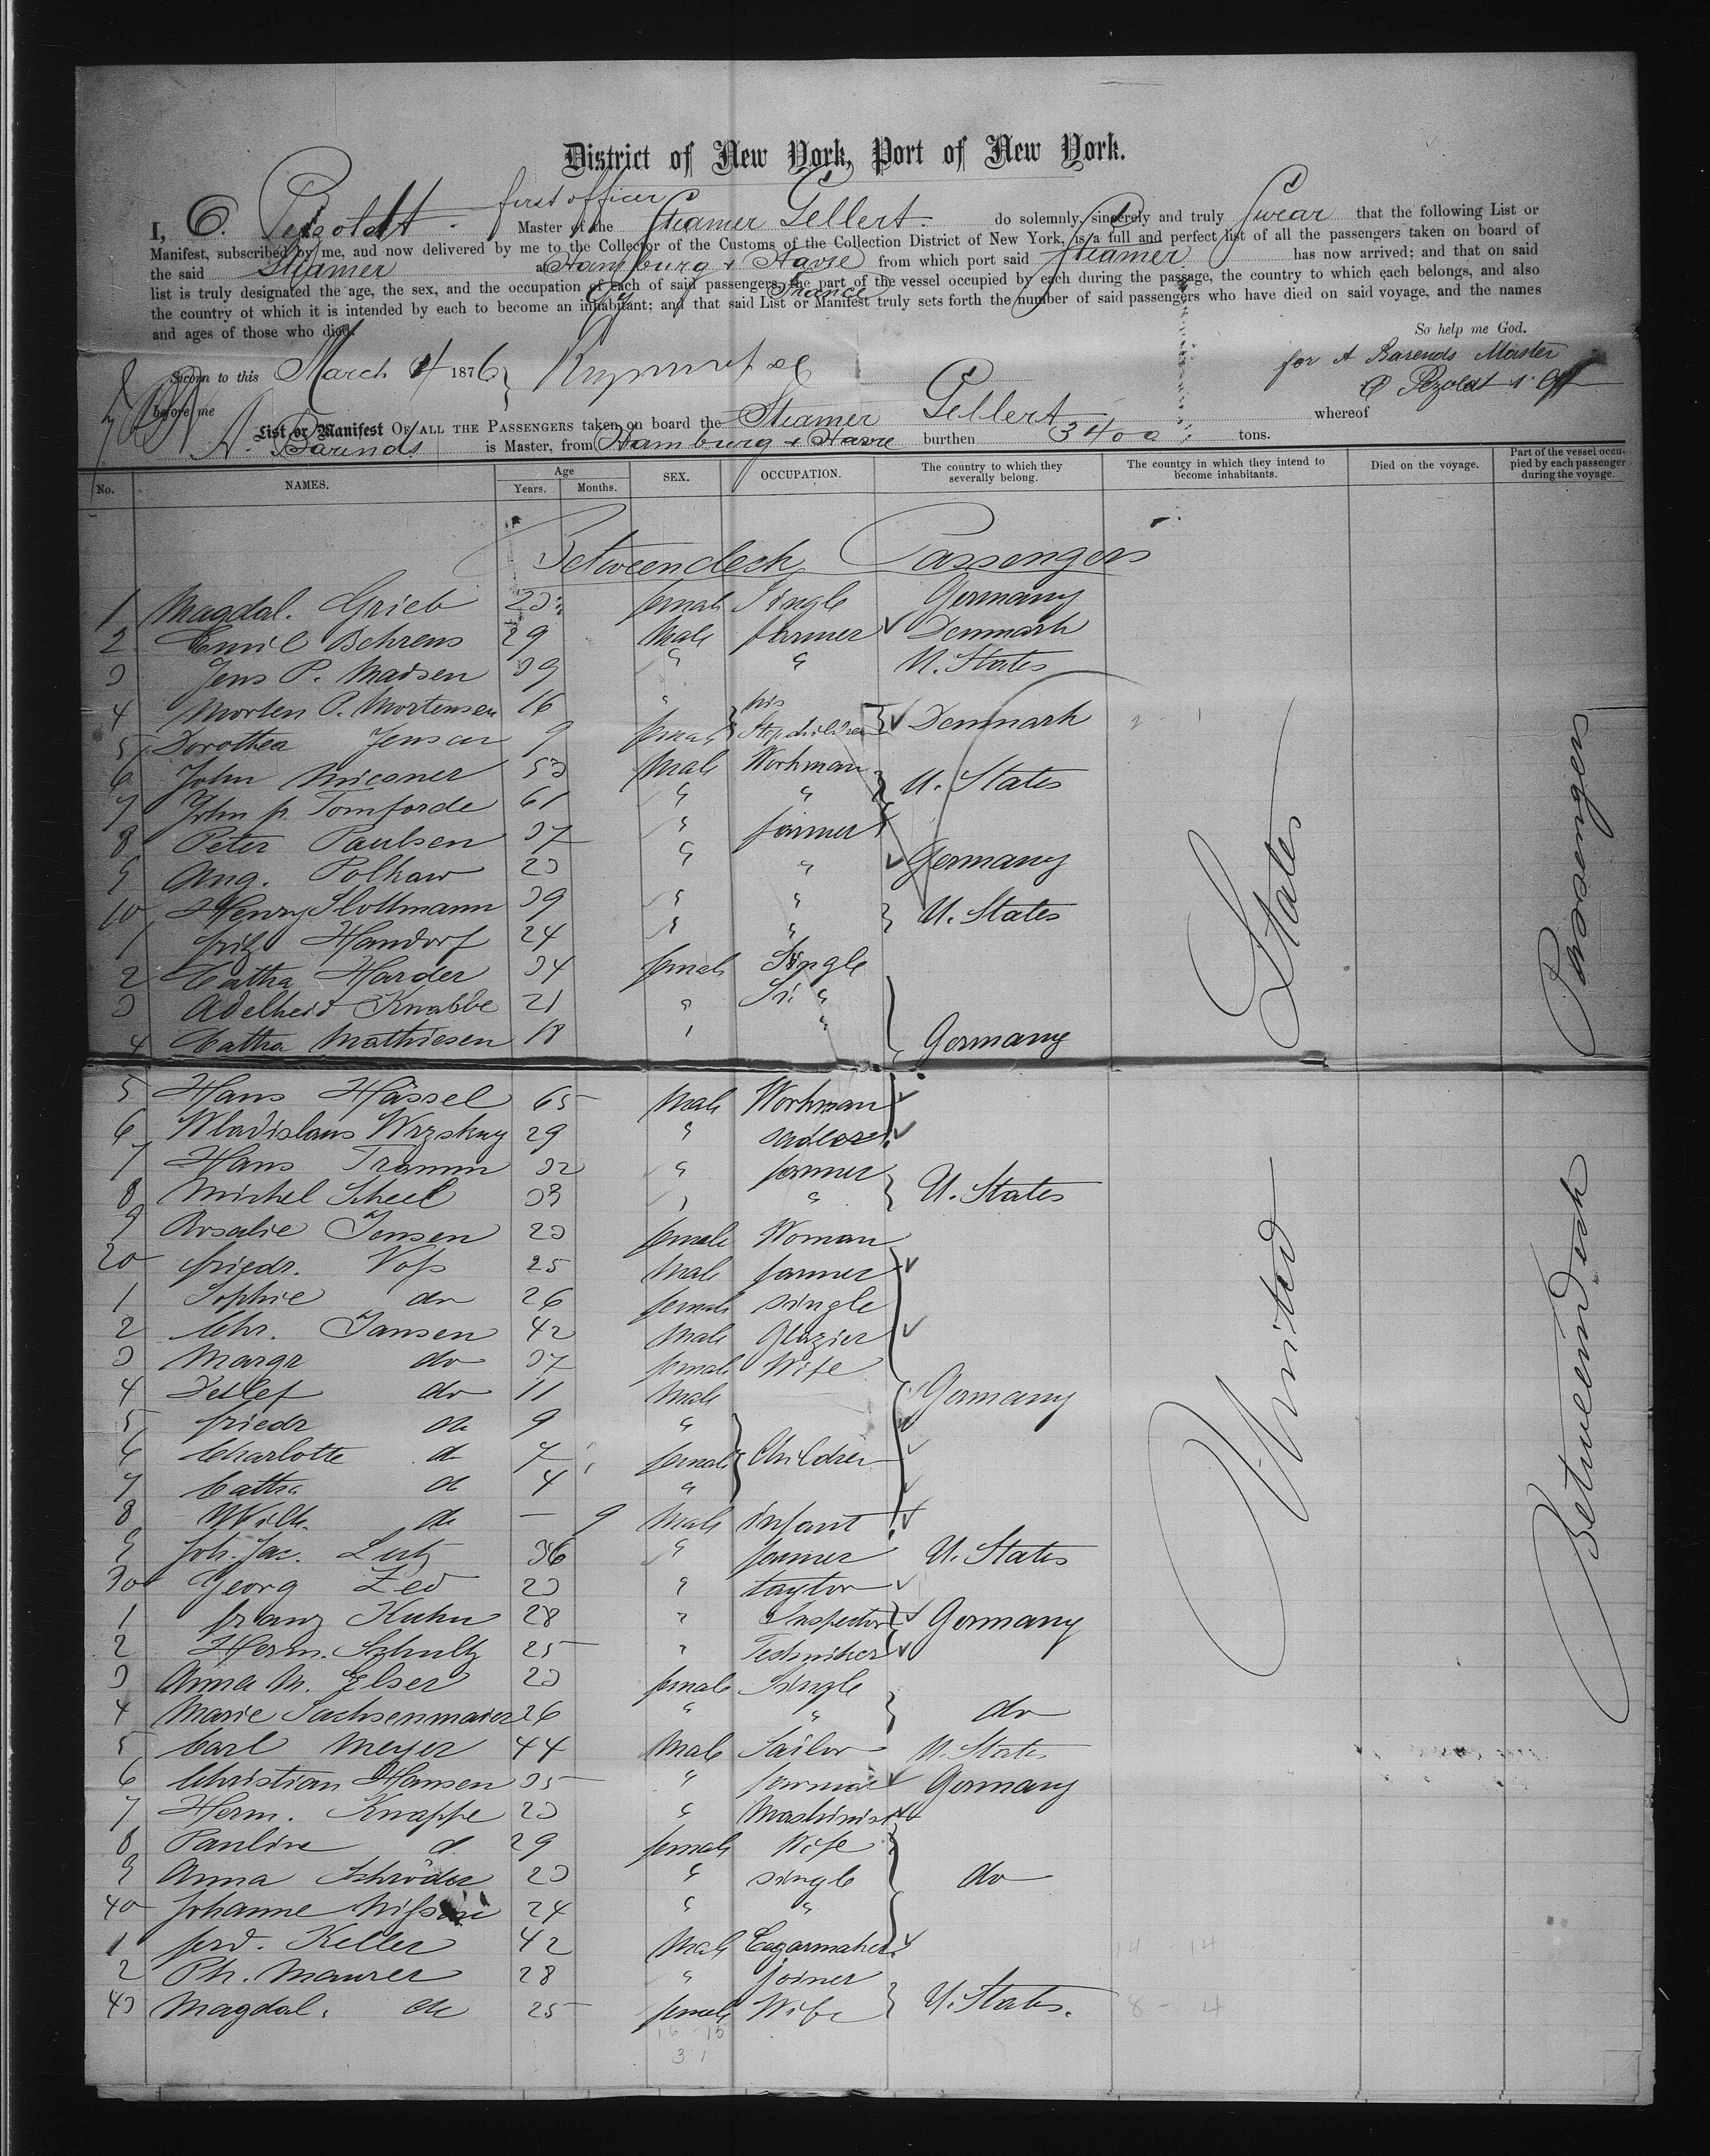 District of New York, Port of New York.
first officer
I, C. Petzoldt Master of the Steamer Gellert do solemnly, sincerely and truly Swear that the following List or
Manifest, subscribed by me, and now delivered by me to the Collector of the Customs of the Collection District of New York, is a full and perfect list of all the passengers taken on board of
the said Steamer at Hamburg & Havre from which port said Steamer has now arrived; and that on said
list is truly designated the age, the sex, and the occupation of each of said passengers, the part of the vessel occupied by each during the passage, the country to which each belongs, and also
France
the country of which it is intended by each to become an inhabitant; and that said List or Manifest truly sets forth the number of said passengers who have died on said voyage, and the names
and ages of those who died.
So help me God.
Sworn to this March 4 1876
for A Barends Master
C Pezoldt 1. Off
before me
List or Manifest OF ALL THE PASSENGERS taken on board the Steamer Gellert whereof
A. Barends is Master, from Hamburg & Havre burthen 3400 tons.
No. NAMES. Age Years. Months. SEX. OCCUPATION. The country to which they severally belong. The country in which they intend to become inhabitants. Died on the voyage. Part of the vessel occupied by each passenger during the voyage.
Betweendeck Passengers
1 Magdal. Grieb 23 female Single Germany
2 Emil Behrens 29 Male farmer Denmark
3 Jens P. Madsen 39 " " U. States
4 Morten P. Mortensen 16 " his
5 Dorothea Jensen 9 female Stepchildren Denmark
6 John Miesner 53 Male Workman
7 John p. Tomforde 61 " " U. States
8 Peter Paulsen 37 " farmer
9 Aug. Polkow 23 " " Germany
10 Henry Slottmann 39 " " U. States
1 fritz Handorf 24 " "
2 Catha Harder 34 female Single
3 Adelheid Knabbe 21 " "
4 Catha Mathiesen 18 " " Germany
5 Hans Hässel 65 Male Workman
6 Wladislaus Wrzskny 29 "
7 Hans Tramm 32 " farmer
8 Michel Scheel 33 " " U. States
9 Rosalie Jensen 23 female Woman
20 friedr. Voss 25 Male farmer
1 Sophie do 26 female single
2 Chr. Jansen 42 Male Glazier
3 Margr do 37 female Wife
4 Detlef do 11 Male Germany
5 friedr do 9 "
6 Charlotte do 7 female Children
7 Catha do 4 "
8 Wilh. do — 9 Male infant
9 Joh. Jac. Lutz 36 " farmer U. States
30 Georg Zed 23 " taylor
1 franz Kuhn 28 " Inspector Germany
2 Herm. Schultz 25 " Techniker
3 Anna M. Elser 23 female Single
4 Marie Sachsenmaier 26 " " do
5 Carl Meyer 44 Male Sailor U. States
6 Christian Hansen 35 " farmer Germany
7 Herm. Knappe 23 " Mashinist
8 Pauline d 29 female Wife
9 Anna Schröder 23 " single do
40 Johanne 24 " "
1 ferd. Keller 42 Male Cegarmaker
2 Ph. Maurer 28 " Joiner
43 Magdal. do 25 female Wife U. States.
United States
Betweendeck Passengers
14 - 14
8 - 4
16 15
31